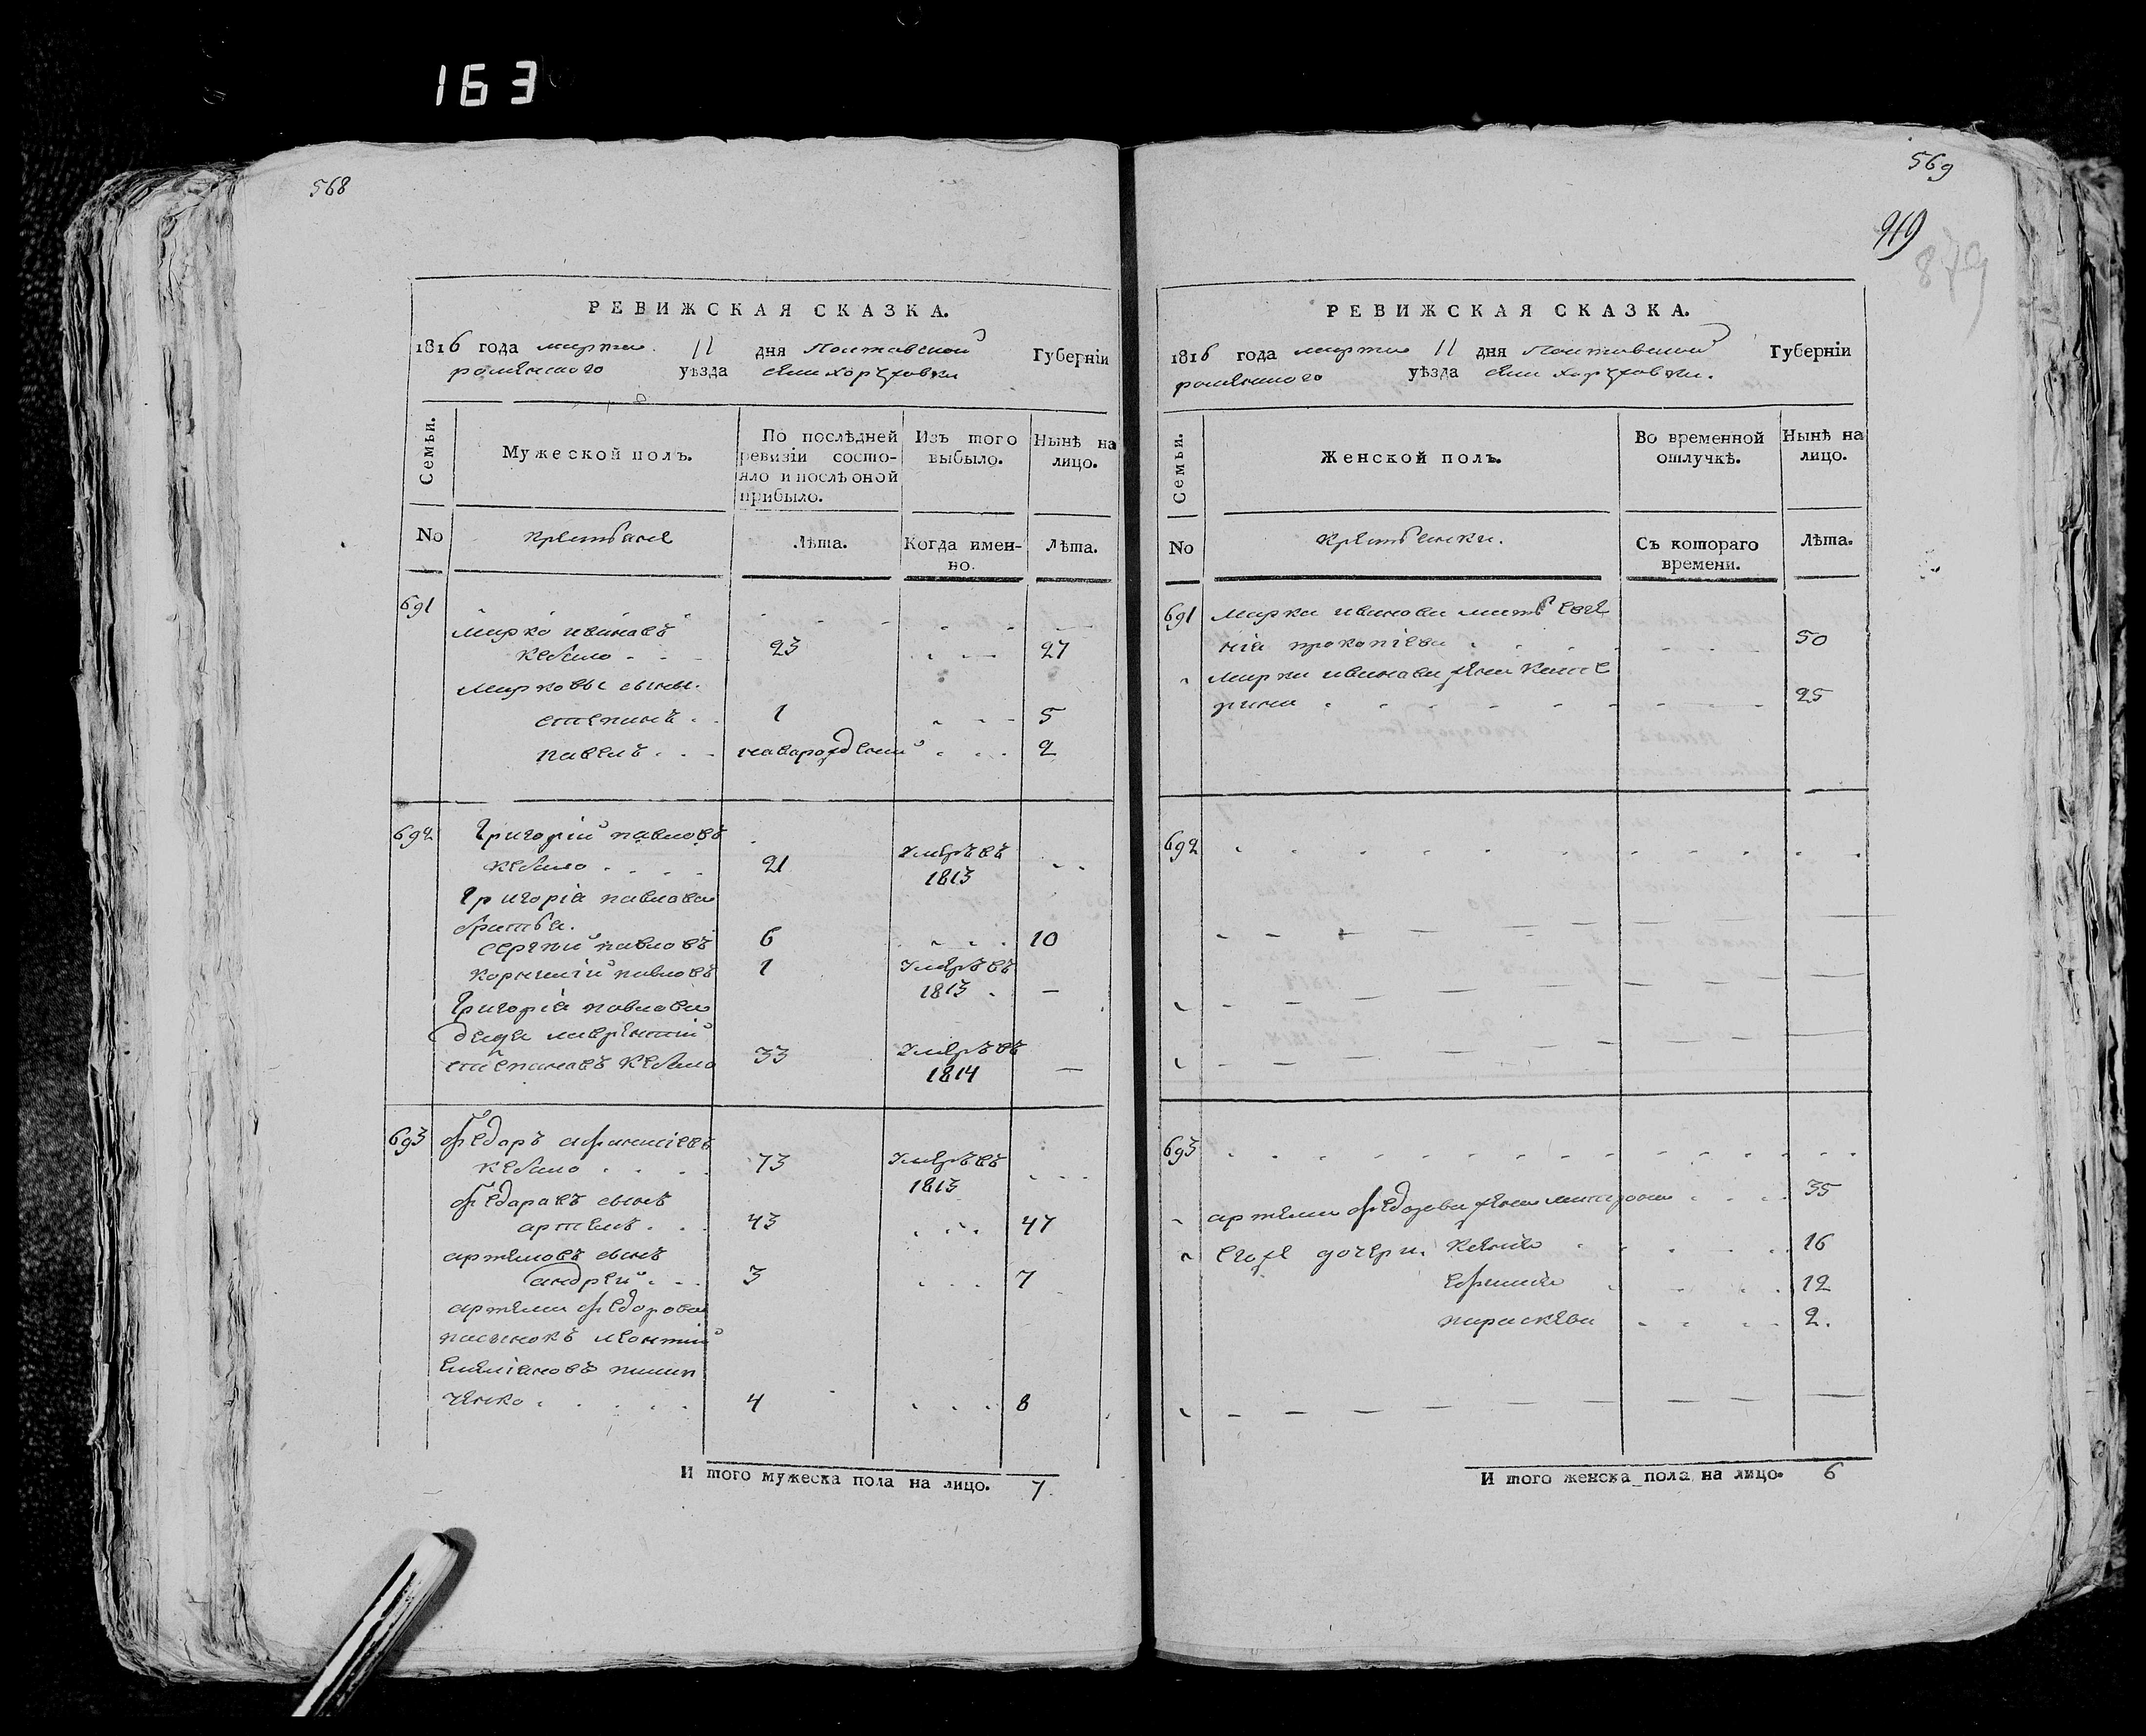 163
568
РЕВИЖСКАЯ СКАЗКА.
1816 года марта 11 дня Полтавской Губерніи
роменского уѣзда села хоружовки
Семьи.
Мужеской полъ.
По послѣдней ревизіи состояло и послѣ оной прибыло.
Изъ того выбыло.
Нынѣ на лицо.
No
крестьяне
Лѣта.
Когда именно.
Лѣта.
691
Марко ивановъ
кебало 23 27
Марковы сыны.
степанъ 1 5
павелъ новарожденый 2
692
Григорій павловъ
кебало 21 Умеръ въ 1813
Григорія павлова
братья.
сергий павловъ 6 10
корнилій павловъ 1 Умеръ въ 1813 —
Григорія павлова
дядя лаврентий
степановъ кебало 33 Умеръ въ 1814 —
693
Федоръ афанасіевъ
кебало 73 Умеръ въ 1813
Федоравъ сынъ
артемъ 43 47
артемовъ сынъ
андрей 3 7
артема Федорова
пасынокъ леонтий
емелiановъ пилип
ченко 4 8
И того мужеска пола на лицо. 7
569
919
879
РЕВИЖСКАЯ СКАЗКА.
1816 года марта 11 дня Полтавской Губерніи
роменского уѣзда села хоружовки.
Семьи.
Женской полъ.
Во временной отлучкѣ.
Нынѣ на лицо.
No
крестьянки.
Съ котораго времени.
Лѣта.
691 марка иванова мать евге
нія прокопіева 50
марка иванова жена кате
рина 25
692
693
артема Федорова жена матрона 35
егоже дочери. ксенія 16
ефимія 12
параскева 2.
И того женска пола на лицо. 6